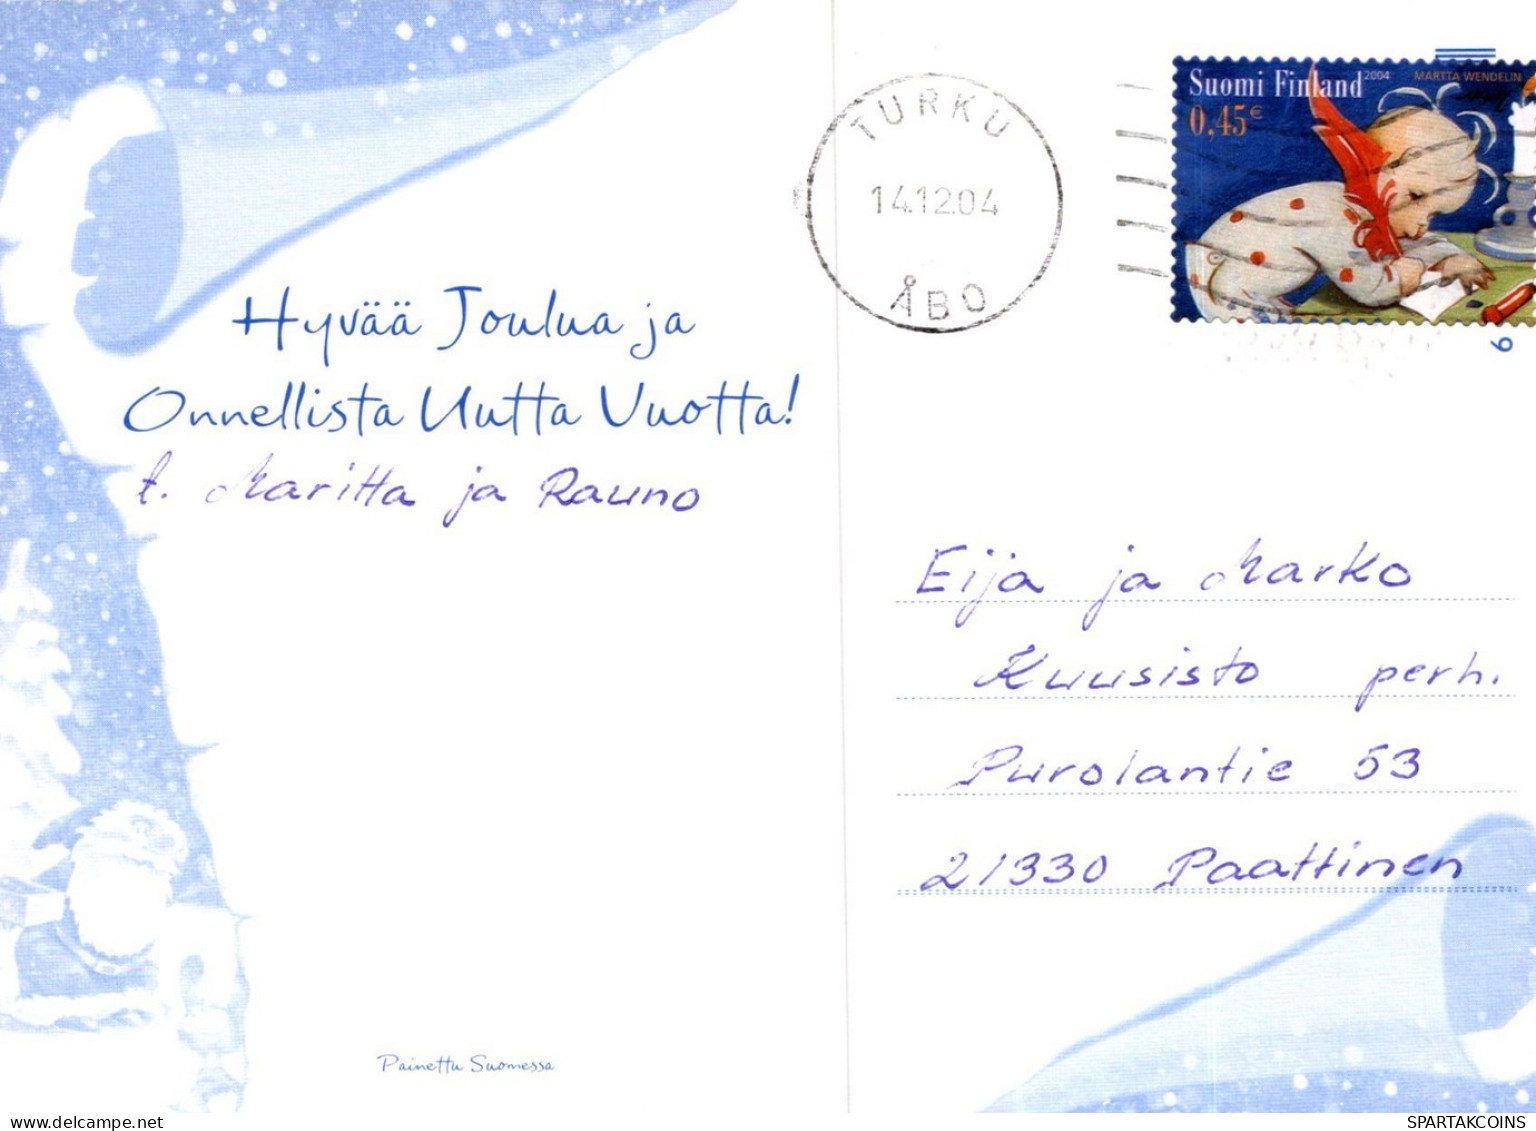 Hyvää Joulua ja
Onnellista Uutta Vuotta!
t. Maritta ja Rauno
Painettu Suomessa
TURKU
14.12.04
ÅBO
Suomi Finland 2004 MARTTA WENDELIN
0,45€
6
Eija ja Marko
Kuusisto perh.
Purolantie 53
21330 Paattinen
SPARTAKCOINS